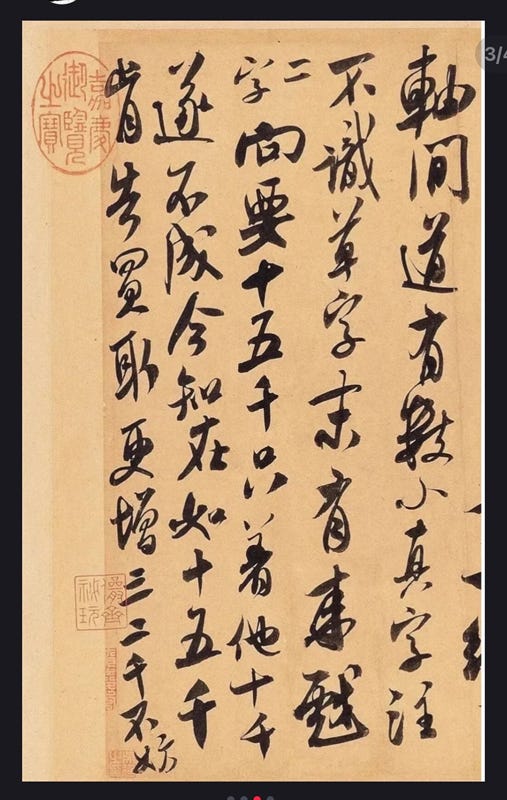 3/4
軸間道有數小真字注
不識草字末有来戲
二字向要十五千只着他十千
遂不成今知在如十五千
肯告買取更增三二千不妨
嘉慶御覽之寶
儼齋秘玩